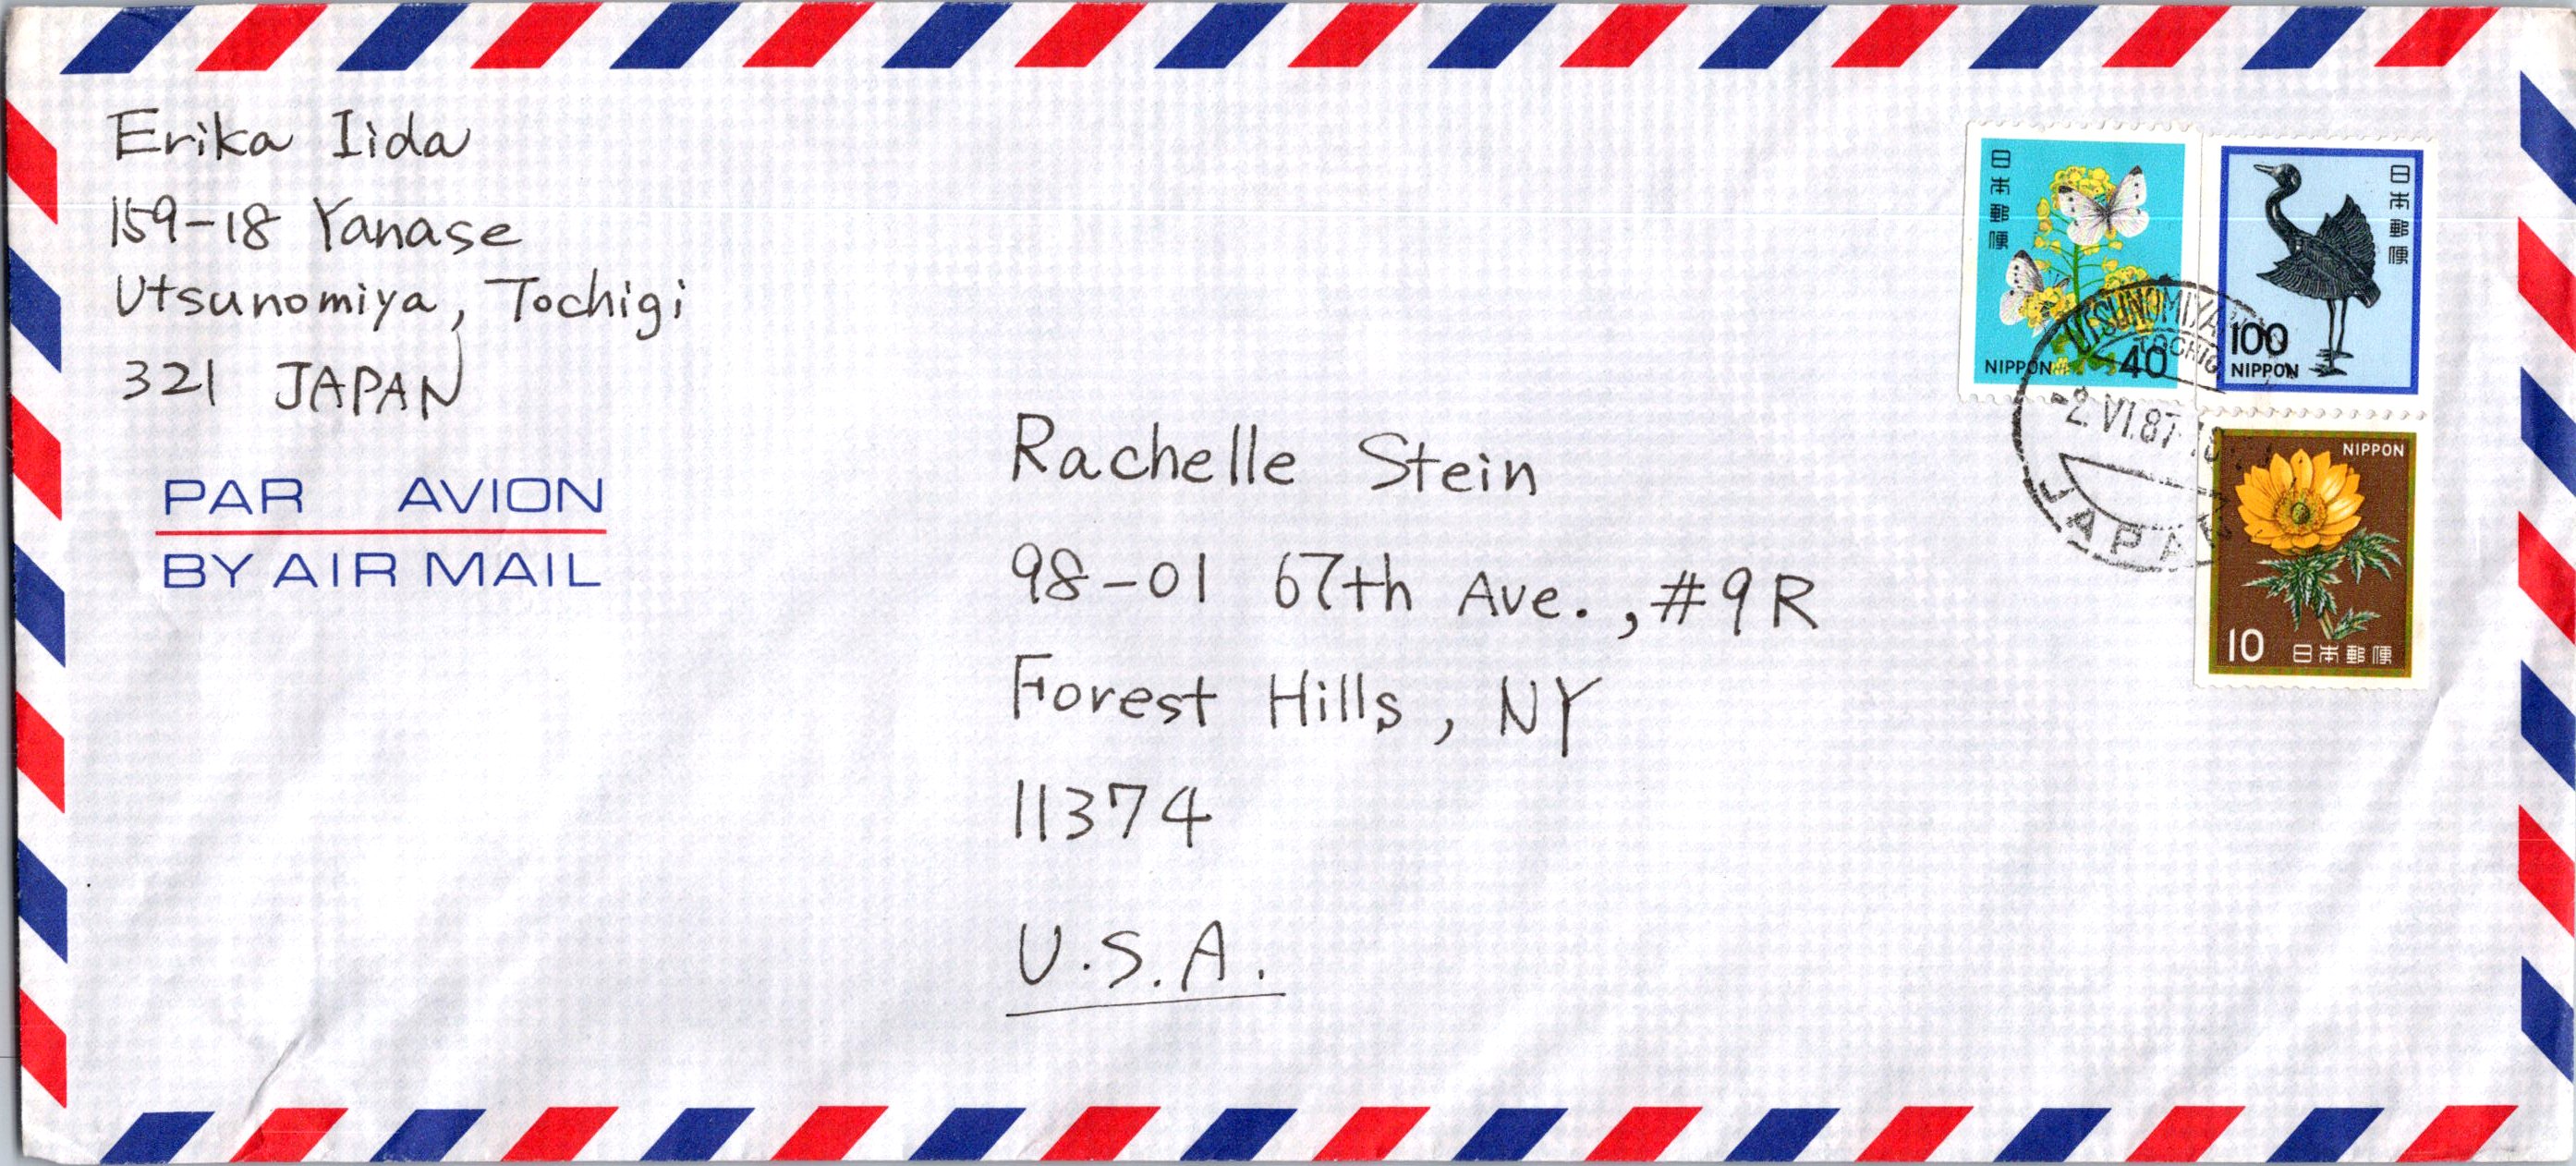 Erika Iida
159-18 Yanase
Utsunomiya, Tochigi
321 JAPAN
PAR AVION
BY AIR MAIL
日本郵便
NIPPON
40
日本郵便
100
NIPPON
UTSUNOMIYA
TOCHIGI
-2.VI.87
JAPAN
NIPPON
10
日本郵便
Rachelle Stein
98-01 67th Ave., #9R
Forest Hills, NY
11374
U.S.A.